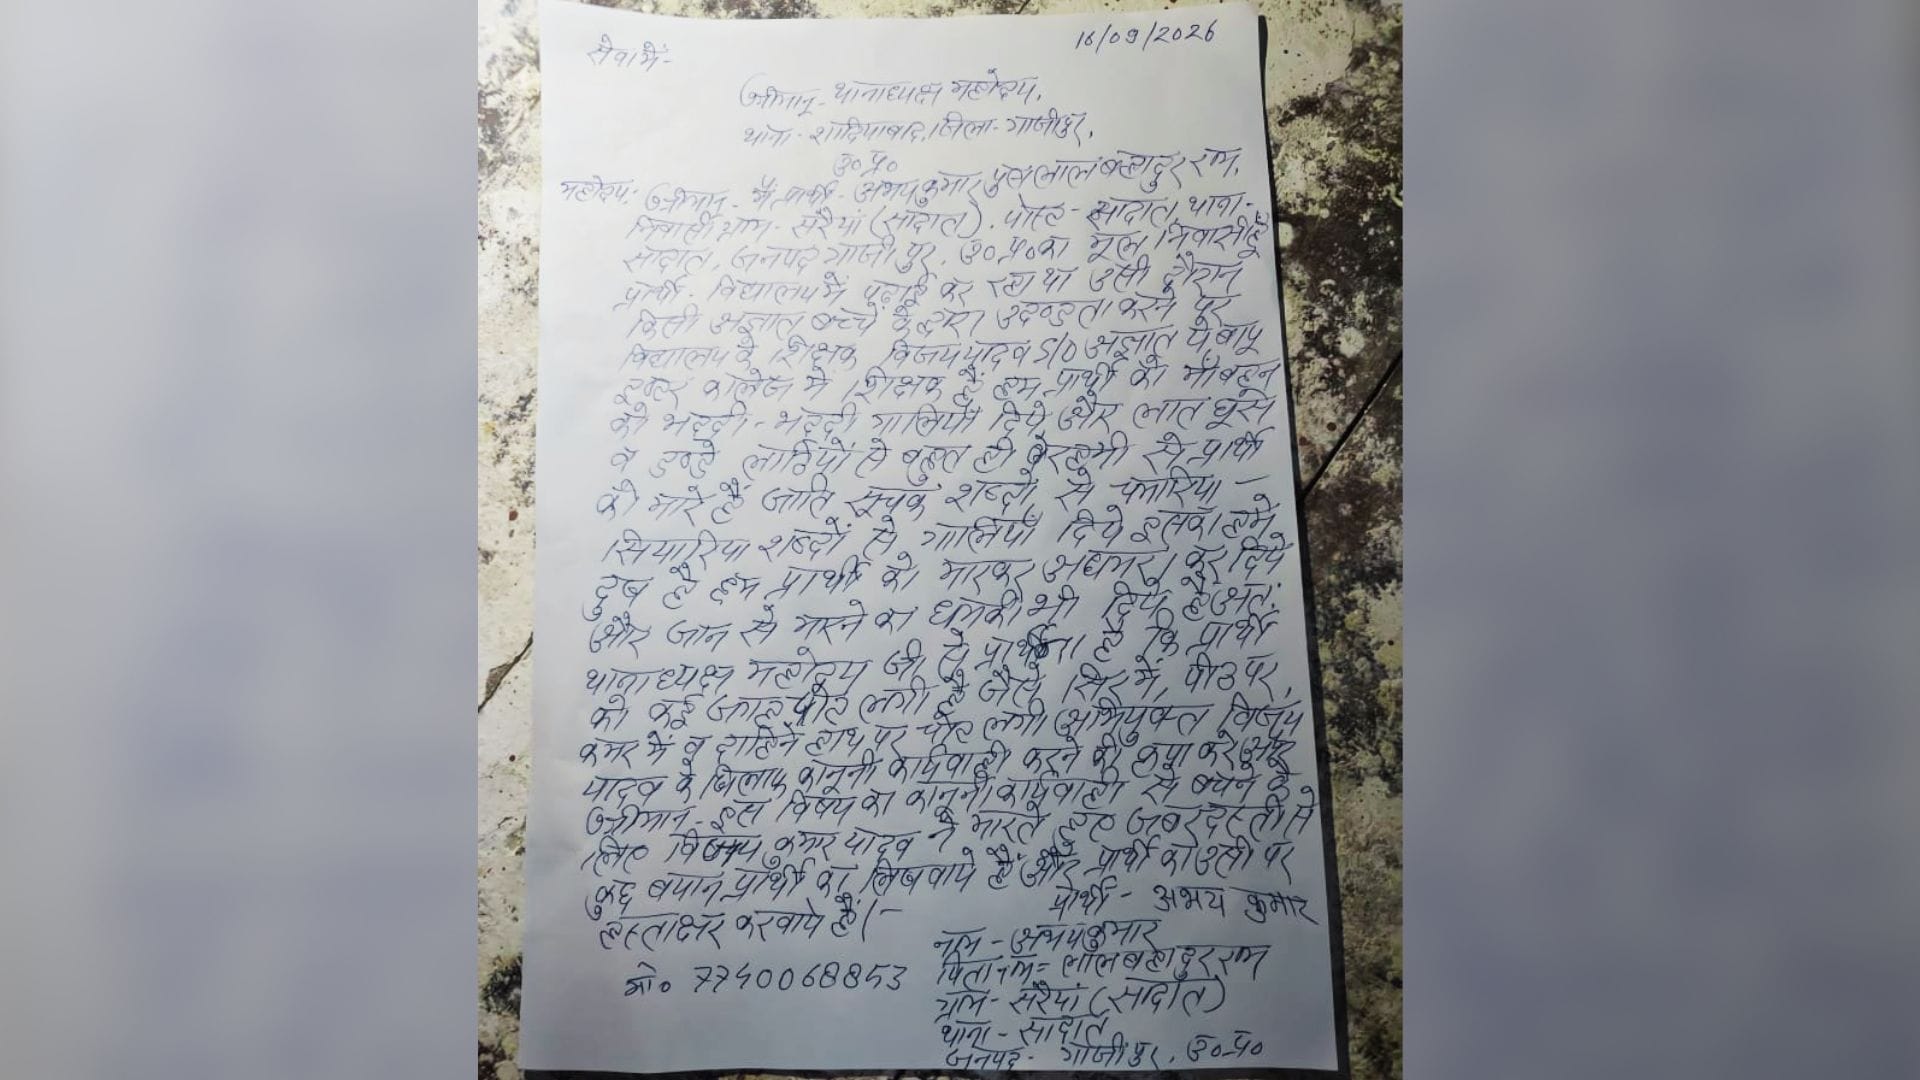 16/09/2026
सेवा में-
श्रीमान्- थानाध्यक्ष महोदय,
थाना- शादियाबाद, जिला- गाजीपुर,
उ०प्र०
महोदय: श्रीमान्- मैं प्रार्थी- अभय कुमार पुत्र लाल बहादुर राम,
निवासी ग्राम- सरैयां (सादात), पोस्ट- सादात, थाना-
सादात, जनपद गाजीपुर, उ०प्र० का मूल निवासी हूँ
प्रार्थी- विद्यालय में पढ़ाई कर रहा था उसी दौरान
किसी अज्ञात बच्चे के द्वारा उदण्डता करने पर
विद्यालय के शिक्षक विजय यादव S/O अज्ञात ये बापू
इण्टर कालेज में शिक्षक हैं हम प्रार्थी को माँ बहन
की भद्दी-भद्दी गालियाँ दिये और लात घूसे
व डण्डे लाठियों से बहुत ही बेरहमी से प्रार्थी
को मारे हैं जाति सूचक शब्दों से चमारिया-
सियारिया शब्दों से गालियाँ दिये इसका हमें
दुख है हम प्रार्थी को मारकर अधमरा कर दिये
और जान से मारने का धमकी भी दिये हैं अतः
थानाध्यक्ष महोदय जी से प्रार्थना है कि प्रार्थी
को कई जगह चोट लगी है जैसे सिर में, पीठ पर,
कमर में व दाहिने हाथ पर चोट लगी अभियुक्त विजय
यादव के खिलाफ कानूनी कार्यवाही करने की कृपा करें और
श्रीमान्- इस विषय का कानूनी कार्यवाही से बचने के
लिए विजय कुमार यादव ने मारते हुए जबरदस्ती से
कुछ बयान प्रार्थी का लिखवाये हैं और प्रार्थी का उसी पर
हस्ताक्षर करवाये हैं।-
प्रार्थी- अभय कुमार
नाम- अभय कुमार
पिता नाम= लाल बहादुर राम
मो० 7740068853
ग्राम- सरैयां (सादात)
थाना- सादात
जनपद- गाजीपुर, उ०प्र०